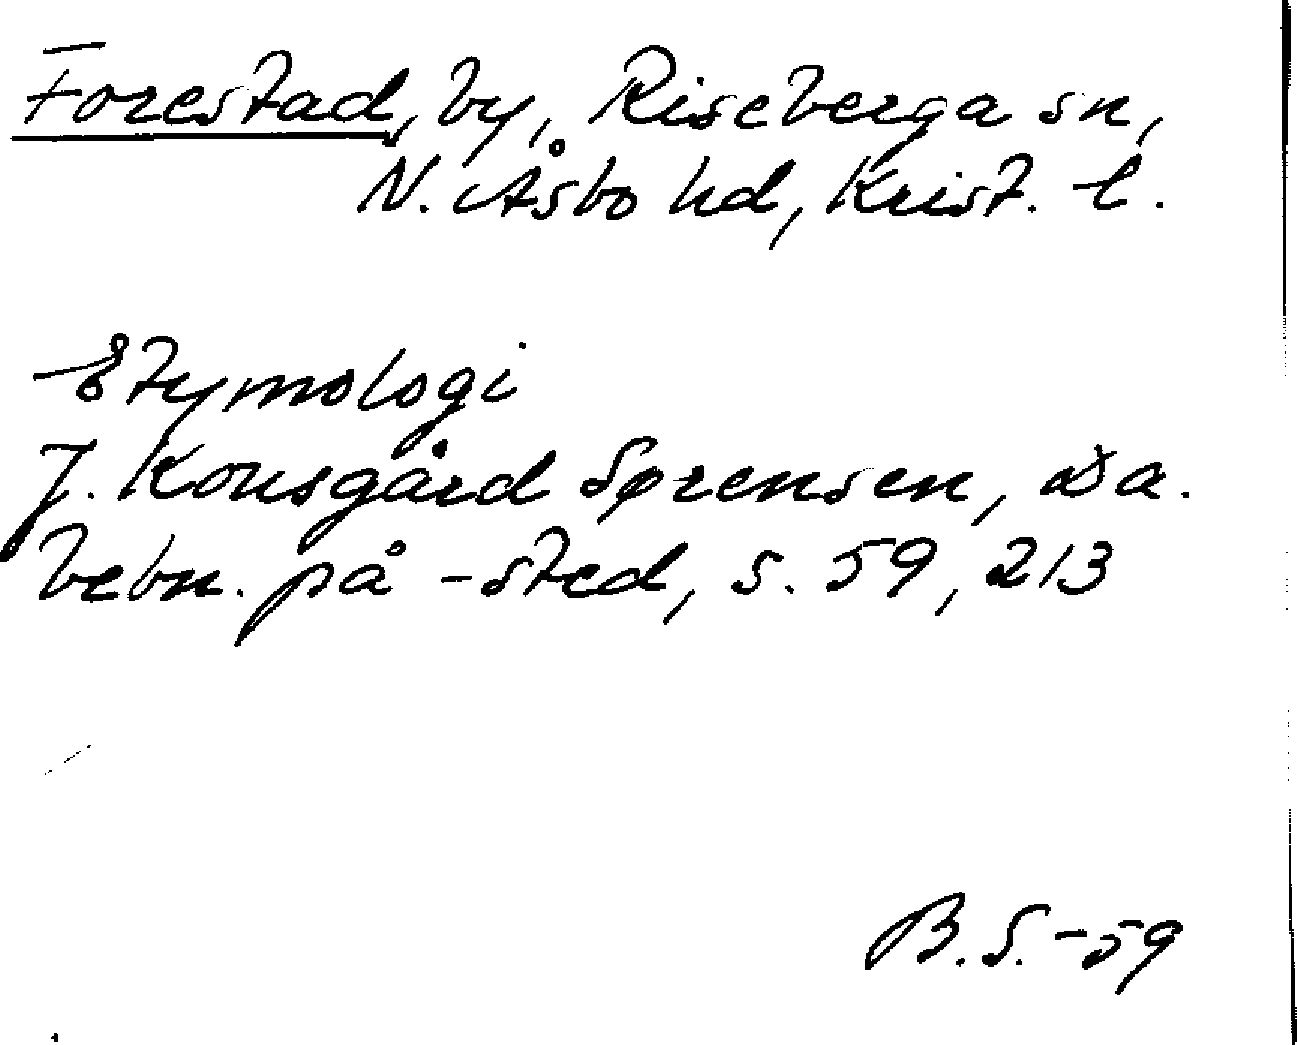 Forestad, by, Riseberga sn,
N. Åsbo hd, Krist. l.
Etymologi
J. Kousgård Sørensen, Da.
bebn. på -sted, s. 59, 213
B.S. -59